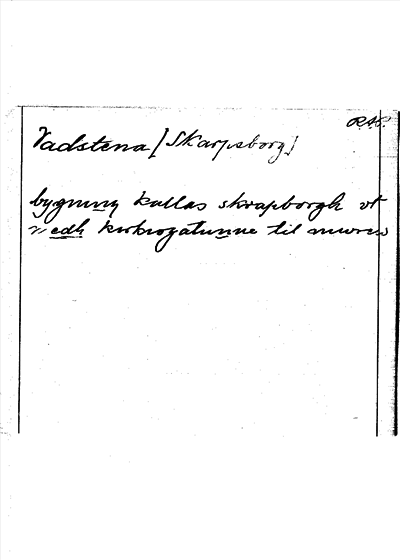 RAP.
Vadstena [Skarpsborg]
bygning kallas skrapborgh vt
wedh kirkiogatunne til mwren